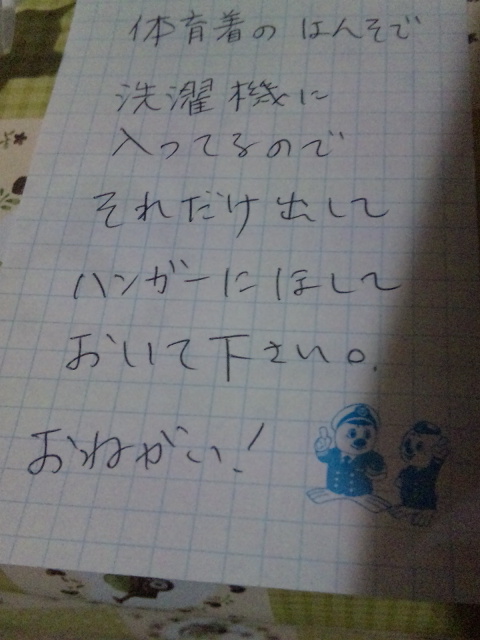 体育着のはんそで
洗濯機に
入ってるので
それだけ出して
ハンガーにほして
おいて下さい。
おねがい!